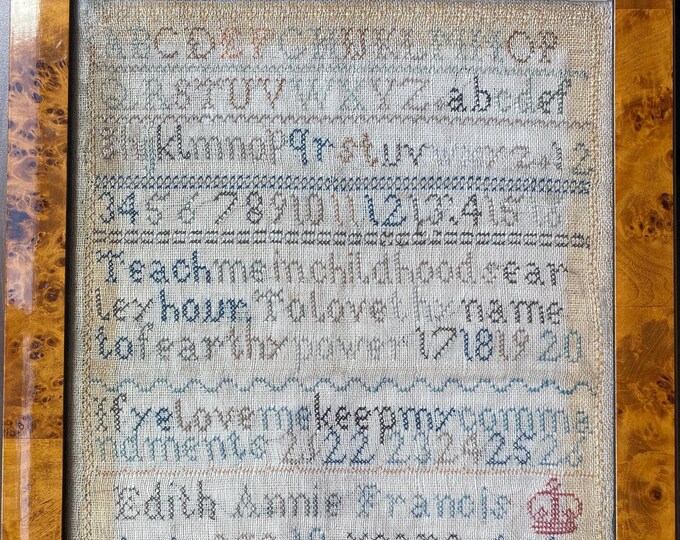 ABCDEFGHIJKLMNOP
QRSTUVWXYZ abcdef
ghijklmnop qrstuvwxyz 12
345678910111213141516
Teach me in childhoods ear
ley hour. To love thy name
to fear thy power 17181920
If ye love me keep my comma
ndments 212223242526
Edith Annie Francis